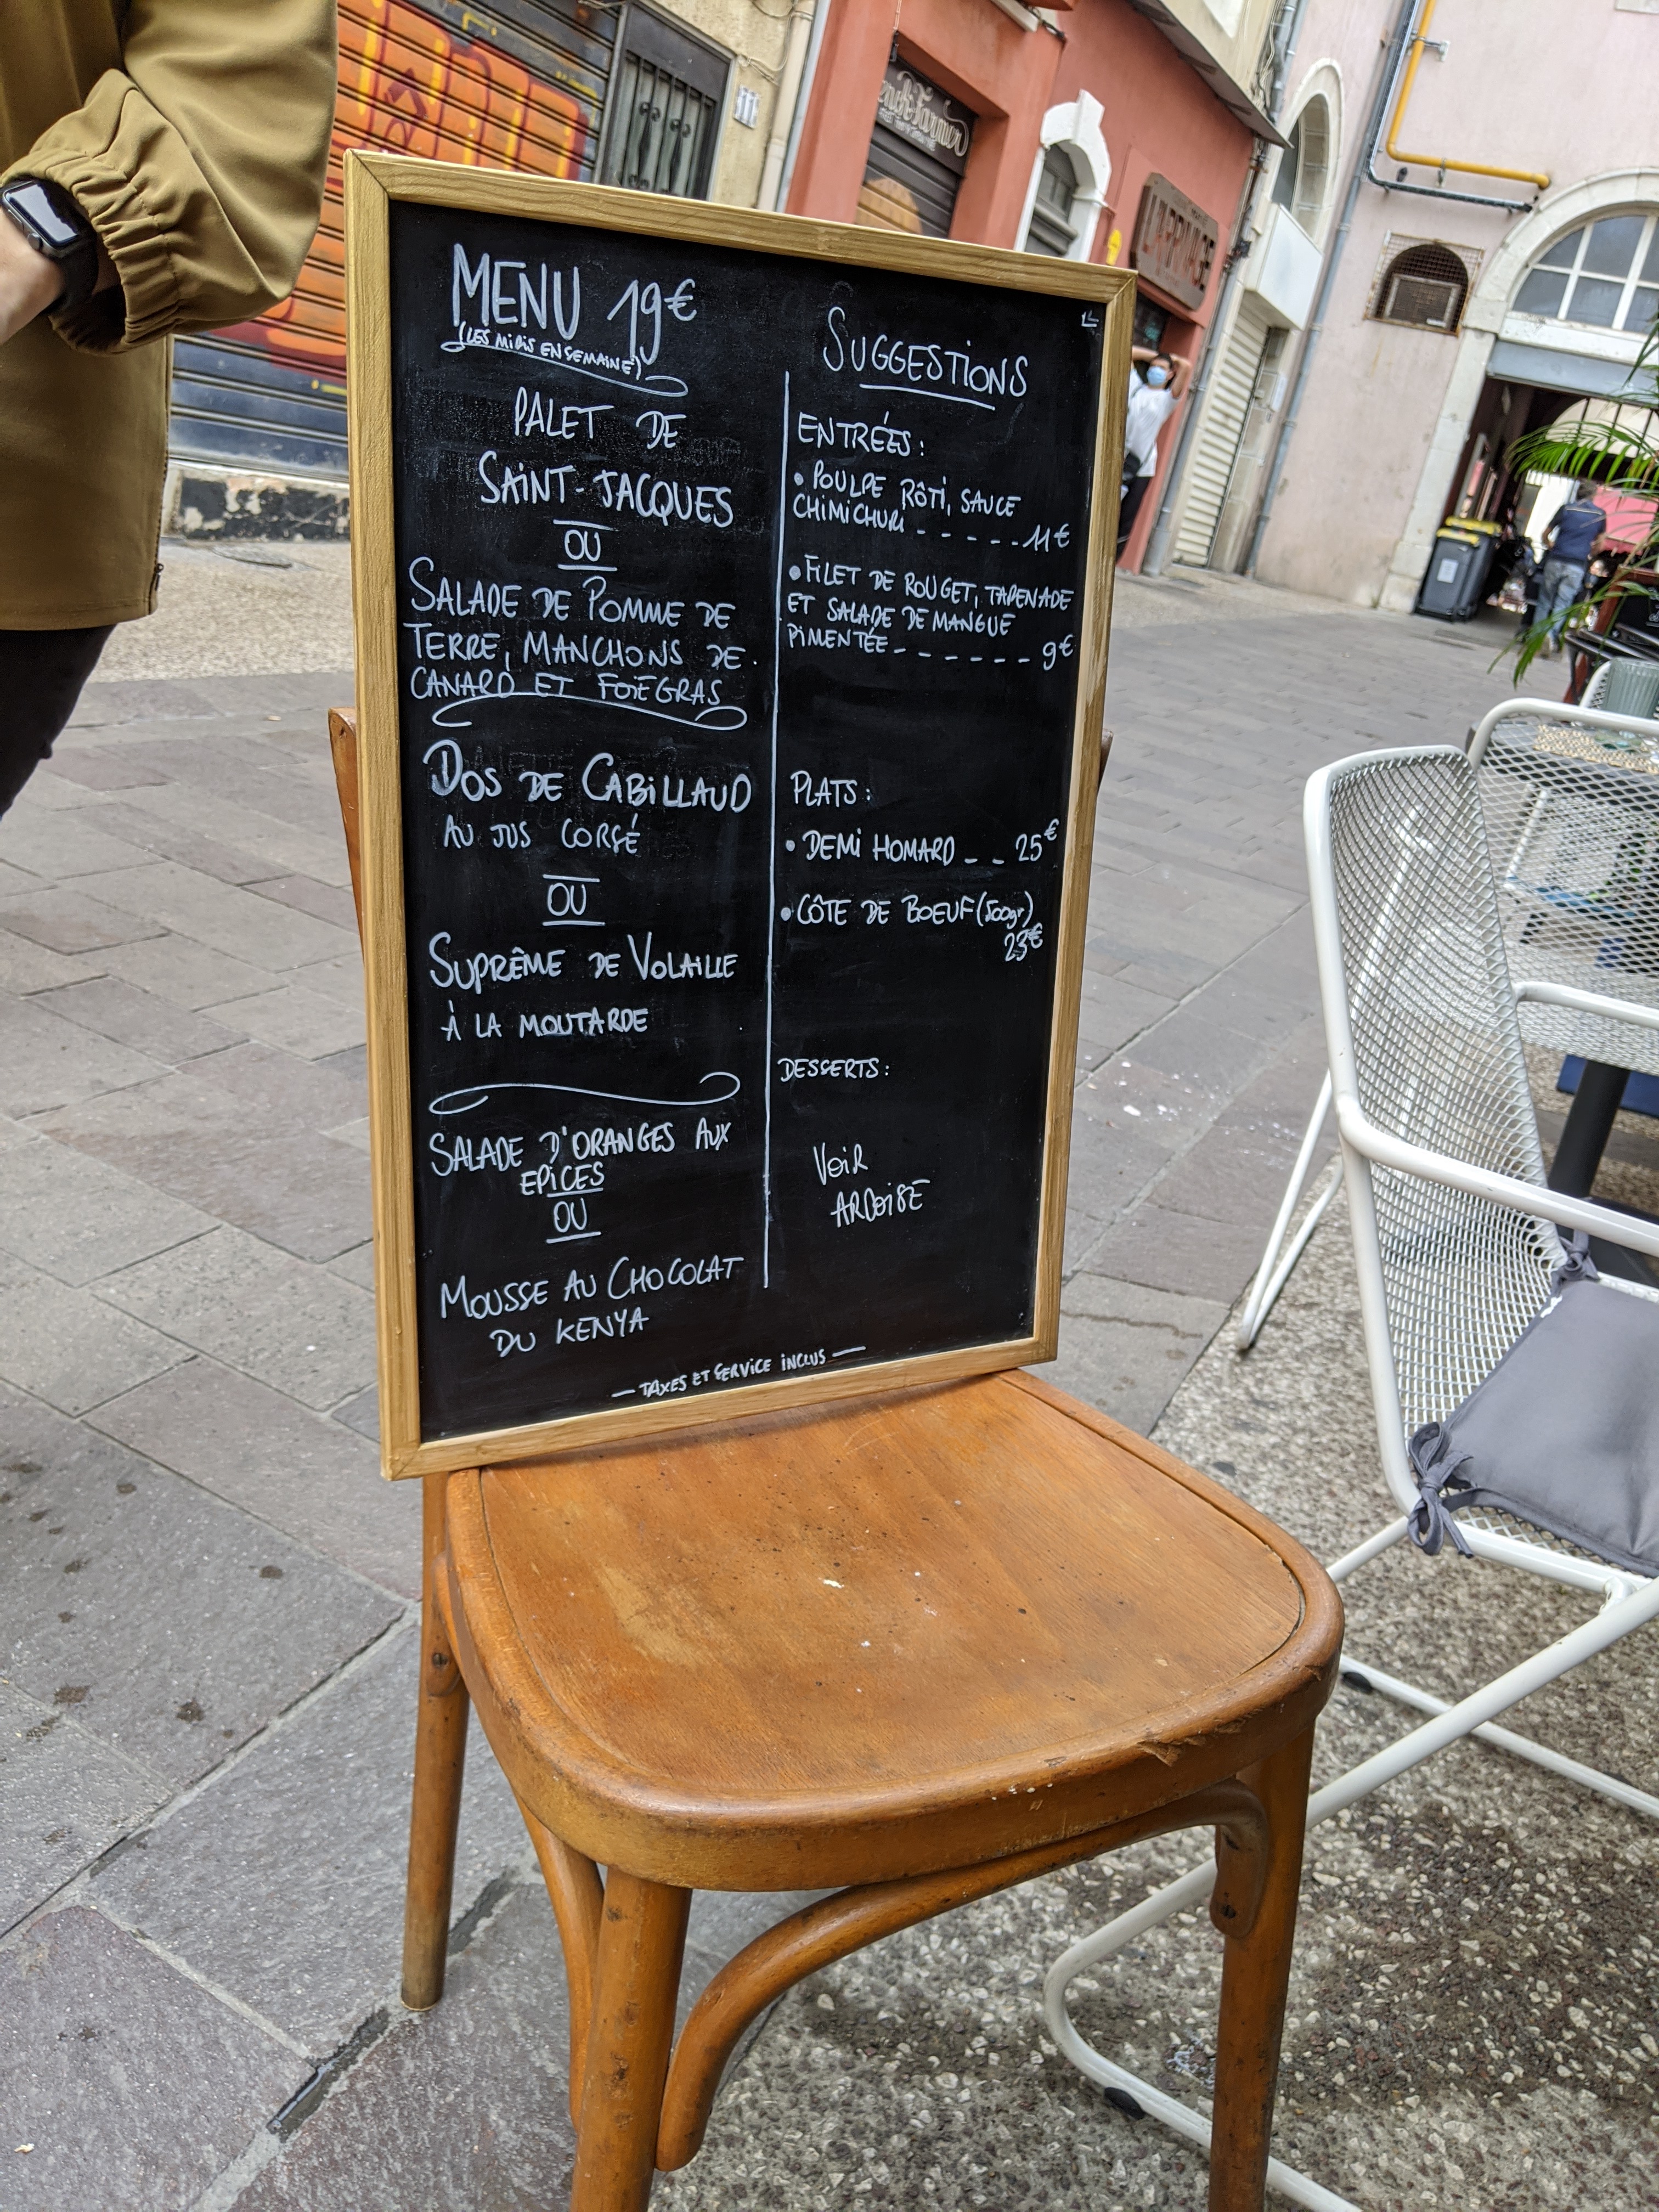 MENU 19€
(LES MIDIS EN SEMAINE)
PALET DE
SAINT-JACQUES
OU
SALADE DE POMME DE
TERRE, MANCHONS DE
CANARD ET FOIE GRAS
DOS DE CABILLAUD
AU JUS CORSÉ
OU
SUPRÊME DE VOLAILLE
À LA MOUTARDE
SALADE D'ORANGES AUX
EPICES
OU
MOUSSE AU CHOCOLAT
DU KENYA
SUGGESTIONS
ENTRÉES:
• POULPE RÔTI, SAUCE
CHIMICHURI - - - - - 11€
• FILET DE ROUGET, TAPENADE
ET SALADE DE MANGUE
PIMENTÉE - - - - - - 9€
PLATS:
• DEMI HOMARD - - 25€
• CÔTE DE BOEUF (500gr)
23€
DESSERTS:
VOIR
ARDOISE
— TAXES ET SERVICE INCLUS —